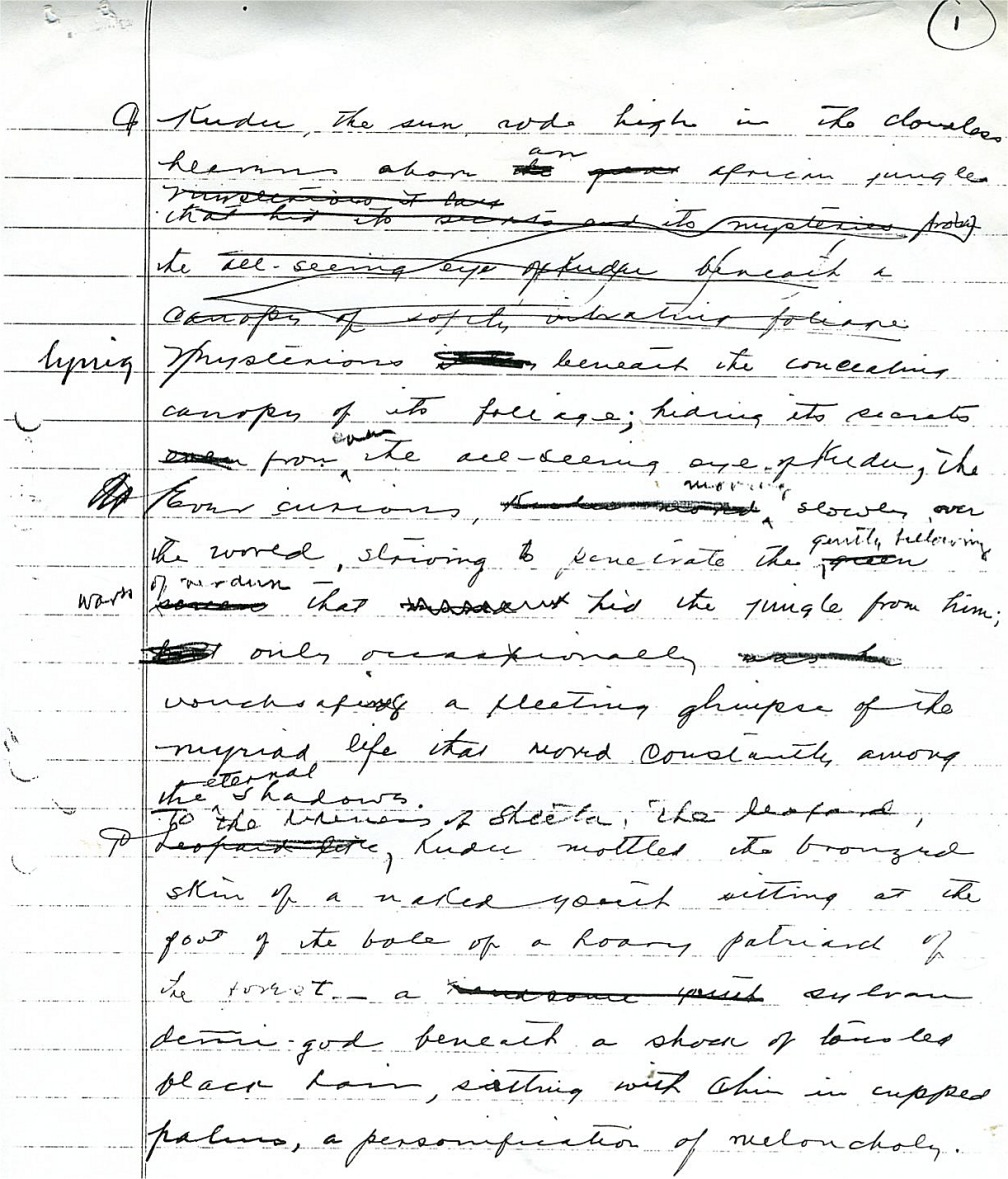 1
¶ Kudu, the sun, rode high in the cloudless
an
heavens above the great african jungle
mysterious it lay
that hid its secrets and its mysteries from
the all-seeing eye of Kudu beneath a
canopy of softly vibrating foliage
lying Mysterious beneath the concealing
canopy of its foliage; hiding its secrets
even
even from the all-seeing eye of Kudu, the
moving
Ever curious, slowly over
gently billowing
the world, striving to penetrate the green
of verdure
screen that hid the jungle from him;
but only occasionally was he
vouchsafing a fleeting glimpse of the
myriad life that moved constantly among
eternal
the shadows.
To the likeness of Sheeta, the leopard,
¶ Leopard like, Kudu mottled the bronzed
skin of a naked youth sitting at the
foot of the bole of a hoary patriarch of
the forest — a handsome youth sylvan
demi-god beneath a shock of tousled
black hair, sitting with chin in cupped
palms, a personification of melancholy.